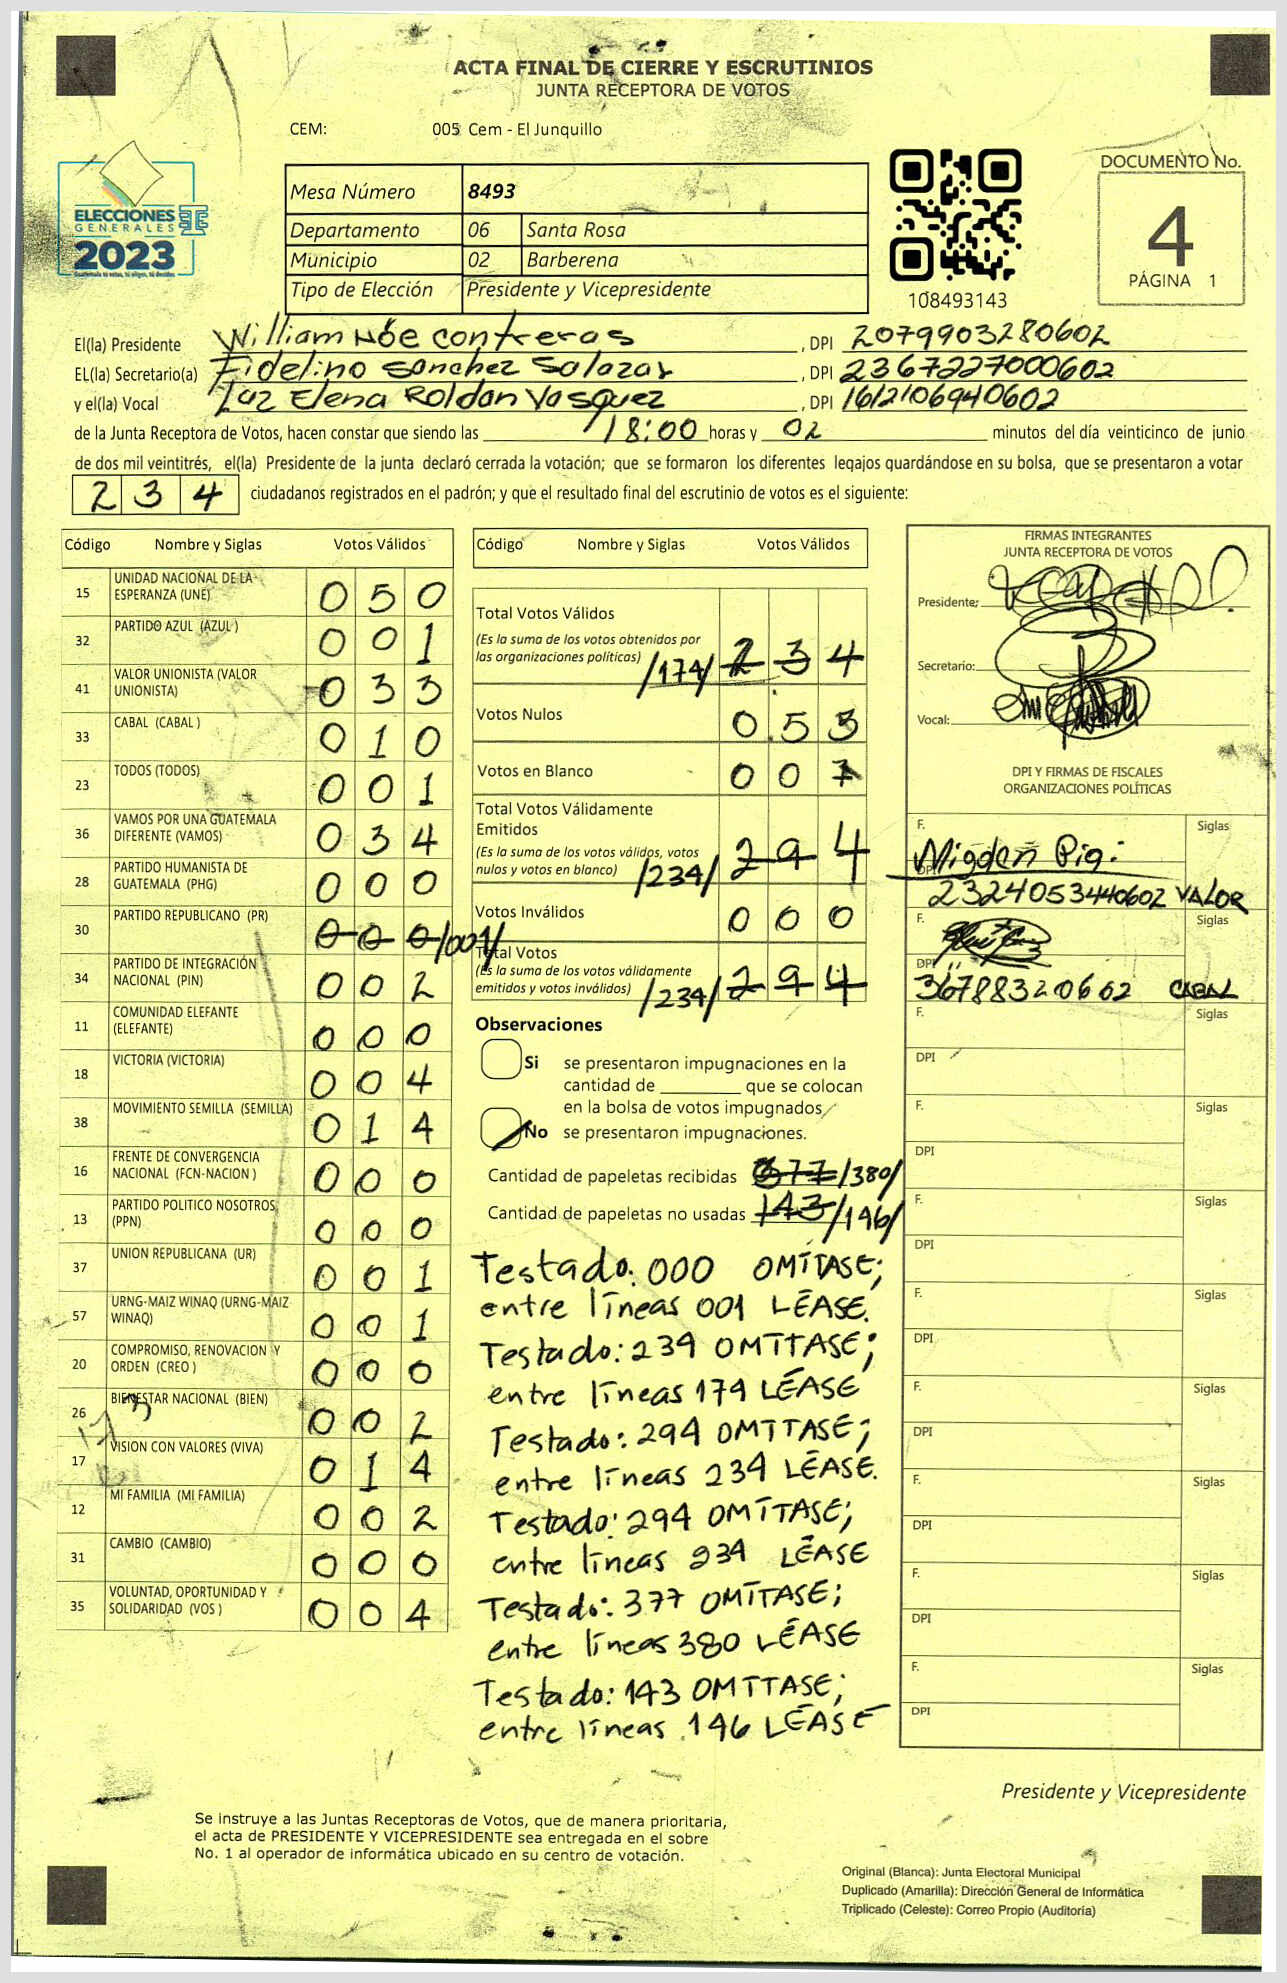 ACTA FINAL DE CIERRE Y ESCRUTINIOS
JUNTA RECEPTORA DE VOTOS
CEM: 005 Cem - El Junquillo
ELECCIONES
GENERALES
2023
Mesa Número 8493
Departamento 06 Santa Rosa
Municipio 02 Barberena
Tipo de Elección Presidente y Vicepresidente
108493143
DOCUMENTO No.
4
PÁGINA 1
El(la) Presidente William Nóe Contreras, DPI 2079903280602
EL(la) Secretario(a) Fidelino Sanchez Salazar, DPI 2367227000602
y el(la) Vocal Luz Elena Roldan Vasquez, DPI 1612106940602
de la Junta Receptora de Votos, hacen constar que siendo las 18:00 horas y 02 minutos del día veinticinco de junio
de dos mil veintitrés, el(la) Presidente de la junta declaró cerrada la votación; que se formaron los diferentes legajos guardándose en su bolsa, que se presentaron a votar
234 ciudadanos registrados en el padrón; y que el resultado final del escrutinio de votos es el siguiente:
Código Nombre y Siglas Votos Válidos
15 UNIDAD NACIONAL DE LA ESPERANZA (UNE) 0 5 0
32 PARTIDO AZUL (AZUL ) 0 0 1
41 VALOR UNIONISTA (VALOR UNIONISTA) 0 3 3
33 CABAL (CABAL ) 0 1 0
23 TODOS (TODOS) 0 0 1
36 VAMOS POR UNA GUATEMALA DIFERENTE (VAMOS) 0 3 4
28 PARTIDO HUMANISTA DE GUATEMALA (PHG) 0 0 0
30 PARTIDO REPUBLICANO (PR) 0 0 0 /001/
34 PARTIDO DE INTEGRACIÓN NACIONAL (PIN) 0 0 2
11 COMUNIDAD ELEFANTE (ELEFANTE) 0 0 0
18 VICTORIA (VICTORIA) 0 0 4
38 MOVIMIENTO SEMILLA (SEMILLA) 0 1 4
16 FRENTE DE CONVERGENCIA NACIONAL (FCN-NACION ) 0 0 0
13 PARTIDO POLITICO NOSOTROS (PPN) 0 0 0
37 UNION REPUBLICANA (UR) 0 0 1
57 URNG-MAIZ WINAQ (URNG-MAIZ WINAQ) 0 0 1
20 COMPROMISO, RENOVACION Y ORDEN (CREO ) 0 0 0
26 BIENESTAR NACIONAL (BIEN) 0 0 2
17 VISION CON VALORES (VIVA) 0 1 4
12 MI FAMILIA (MI FAMILIA) 0 0 2
31 CAMBIO (CAMBIO) 0 0 0
35 VOLUNTAD, OPORTUNIDAD Y SOLIDARIDAD (VOS ) 0 0 4
Código Nombre y Siglas Votos Válidos
Total Votos Válidos
(Es la suma de los votos obtenidos por
las organizaciones políticas) /174/ 2 3 4
Votos Nulos 0 5 3
Votos en Blanco 0 0 7
Total Votos Válidamente
Emitidos
(Es la suma de los votos válidos, votos
nulos y votos en blanco) /234/ 2 9 4
Votos Inválidos 0 0 0
Total Votos
(Es la suma de los votos válidamente
emitidos y votos inválidos) /234/ 2 9 4
Observaciones
Si se presentaron impugnaciones en la
cantidad de ________ que se colocan
en la bolsa de votos impugnados
No se presentaron impugnaciones.
Cantidad de papeletas recibidas 377 /380/
Cantidad de papeletas no usadas 143 /146/
Testado: 000 OMÍTASE;
entre líneas 001 LÉASE.
Testado: 234 OMÍTASE;
entre líneas 174 LÉASE
Testado: 294 OMÍTASE;
entre líneas 234 LÉASE.
Testado: 294 OMÍTASE;
entre líneas 234 LÉASE
Testado: 377 OMÍTASE;
entre líneas 380 LÉASE
Testado: 143 OMÍTASE;
entre líneas 146 LÉASE
FIRMAS INTEGRANTES
JUNTA RECEPTORA DE VOTOS
Presidente:
Secretario:
Vocal:
DPI Y FIRMAS DE FISCALES
ORGANIZACIONES POLÍTICAS
F. Siglas
DPI 2324053440602 VALOR
F. Siglas
DPI 367883210602 CABAL
F. Siglas
DPI
F. Siglas
DPI
F. Siglas
DPI
F. Siglas
DPI
F. Siglas
DPI
F. Siglas
DPI
F. Siglas
DPI
F. Siglas
DPI
Presidente y Vicepresidente
Se instruye a las Juntas Receptoras de Votos, que de manera prioritaria,
el acta de PRESIDENTE Y VICEPRESIDENTE sea entregada en el sobre
No. 1 al operador de informática ubicado en su centro de votación.
Original (Blanca): Junta Electoral Municipal
Duplicado (Amarilla): Dirección General de Informática
Triplicado (Celeste): Correo Propio (Auditoría)